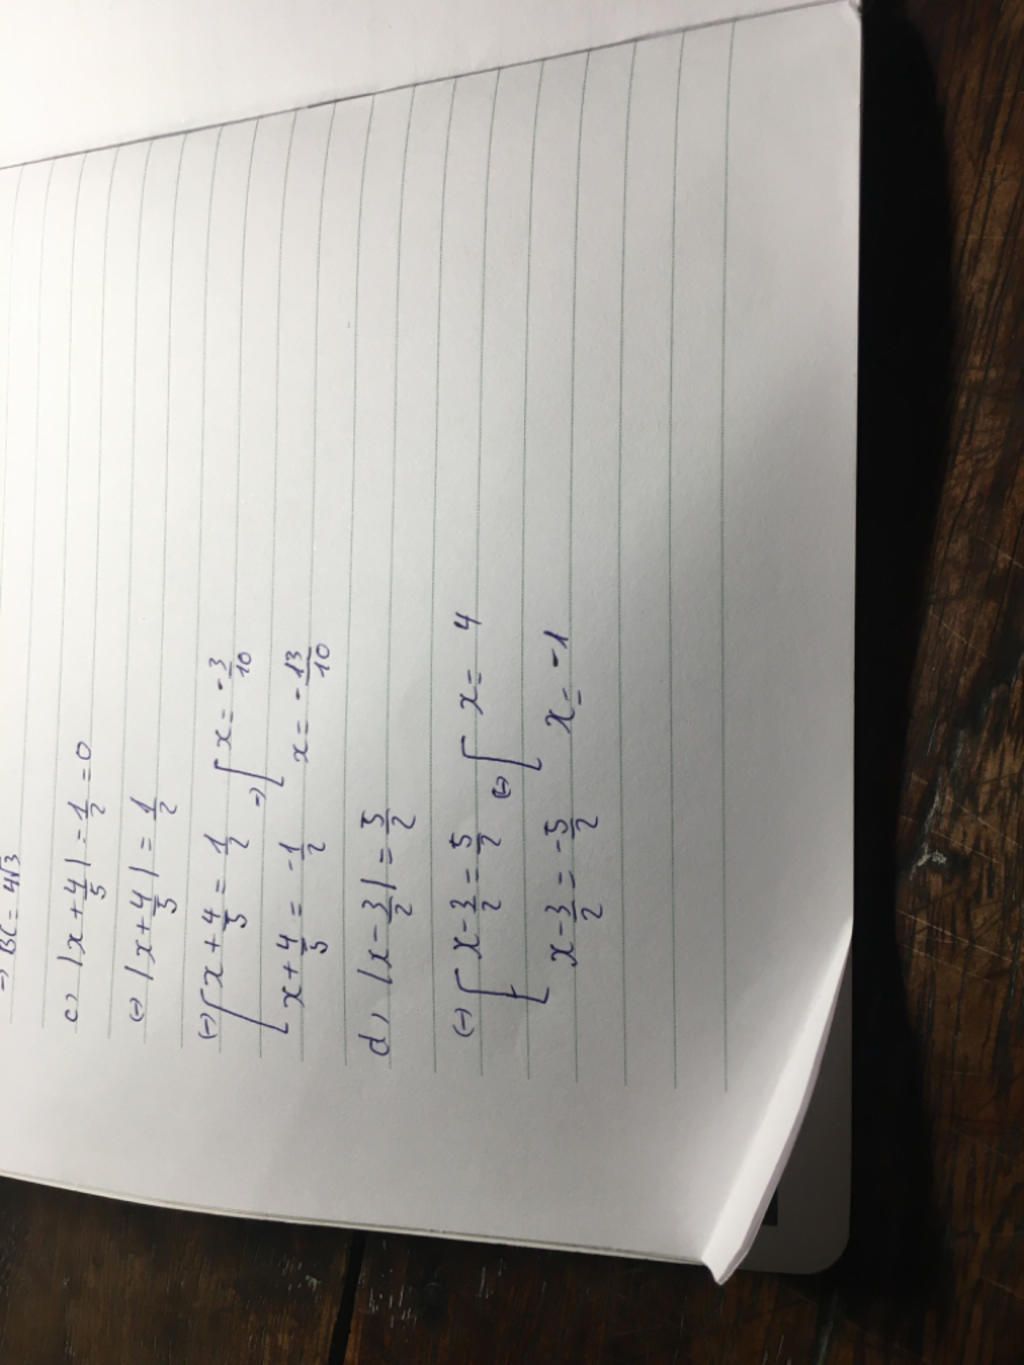 => BC = 4√3
c) |x + 4/5| - 1/2 = 0
(=) |x + 4/5| = 1/2
(=) [ x + 4/5 = 1/2 => [ x = -3/10
x + 4/5 = -1/2 x = -13/10
d) |x - 3/2| = 5/2
(=) [ x - 3/2 = 5/2 (=) [ x = 4
x - 3/2 = -5/2 x = -1